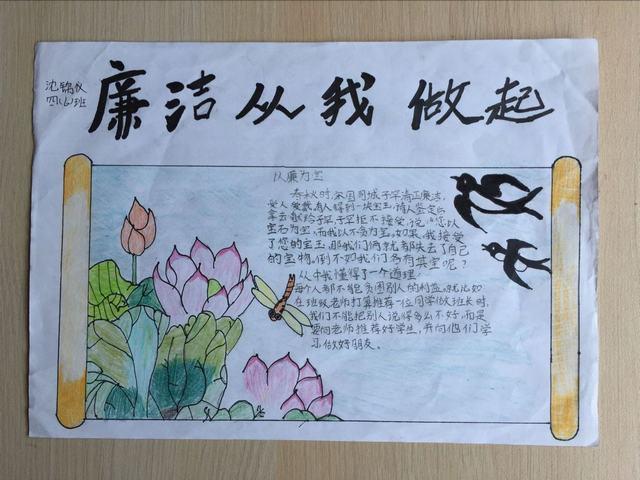 廉洁从我做起
沈锦仪
四(4)班
以廉为宝
春秋时,宋国司城子罕清正廉洁,
受人爱戴。有人得到一块宝玉,请人鉴定后
拿去献给子罕,子罕拒不接受,说:“您以
宝石为宝,而我以不贪为宝。如果我接受
了您的宝玉,那我们俩就都失去了自己
的宝物。倒不如我们各有其宝呢?
从中我懂得了一个道理:
每个人都不能贪图别人的利益。就比如
在班级老师打算推荐一位同学做班长时,
我们不能把别人说得多么不好,而是
要向老师推荐好学生,并向他们学
习,做好朋友。